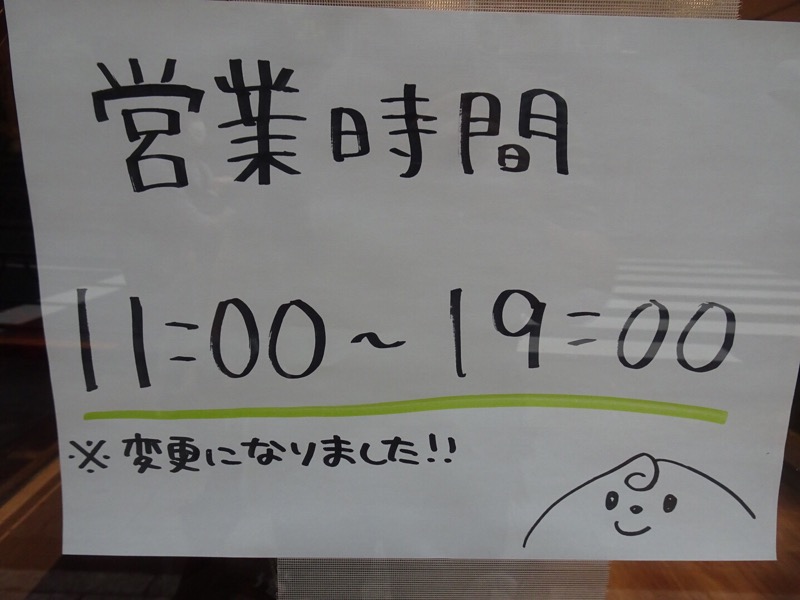 営業時間
11:00～19:00
※変更になりました!!